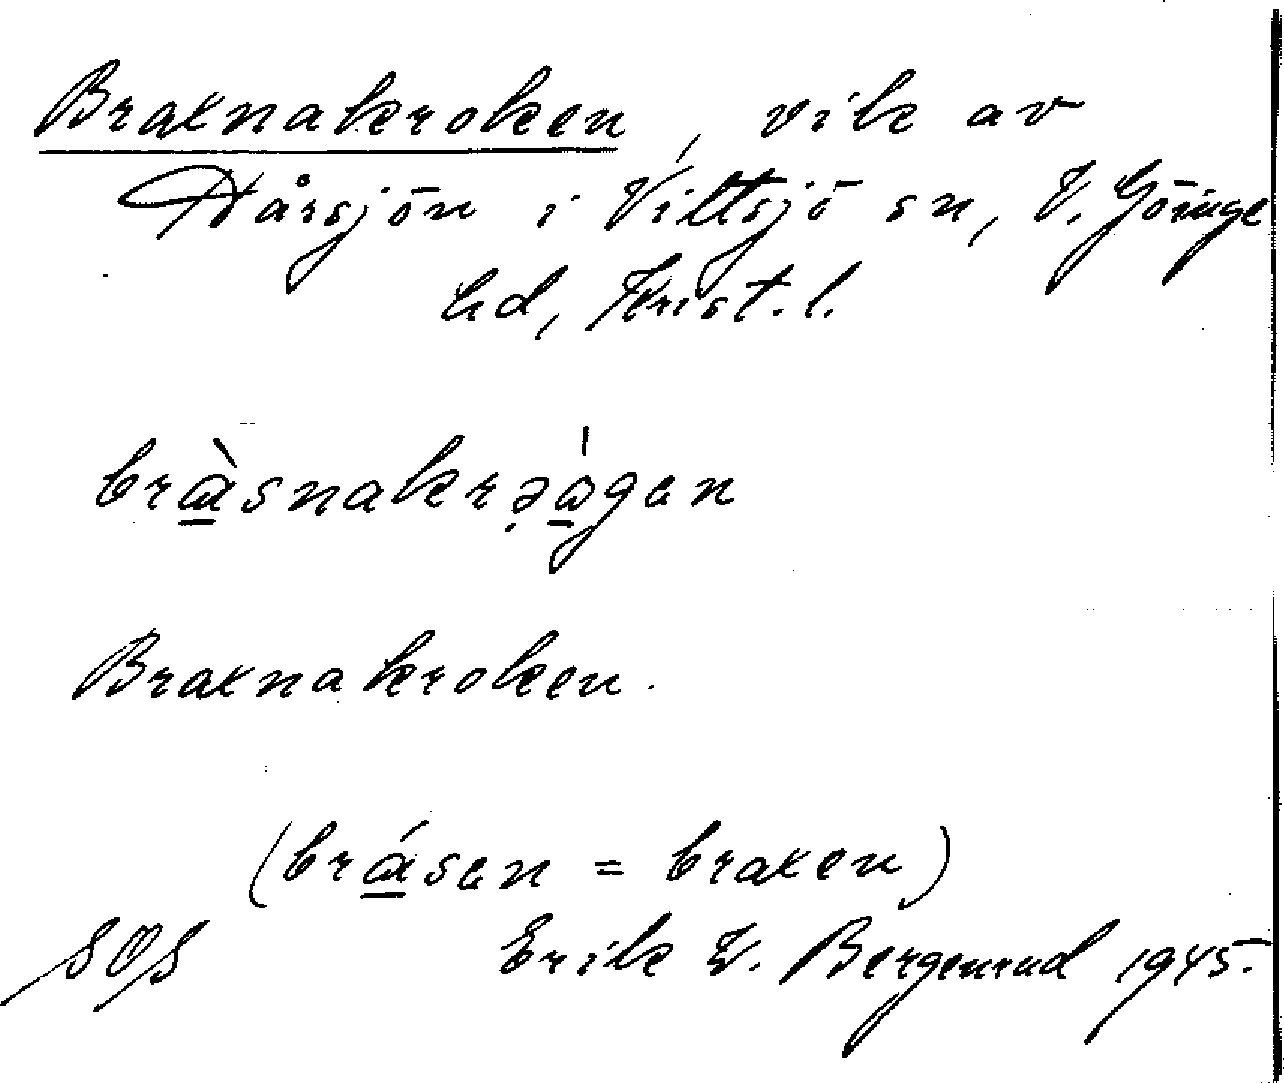 Braxnakroken, vik av
Hårsjön i Vittsjö sn, V. Göinge
hd, Krist. l.
brɑ̀snakrə̣ágen
Braxnakroken.
(brɑ́sen = braxen)
SOS Erik W. Bergenrud 1945.